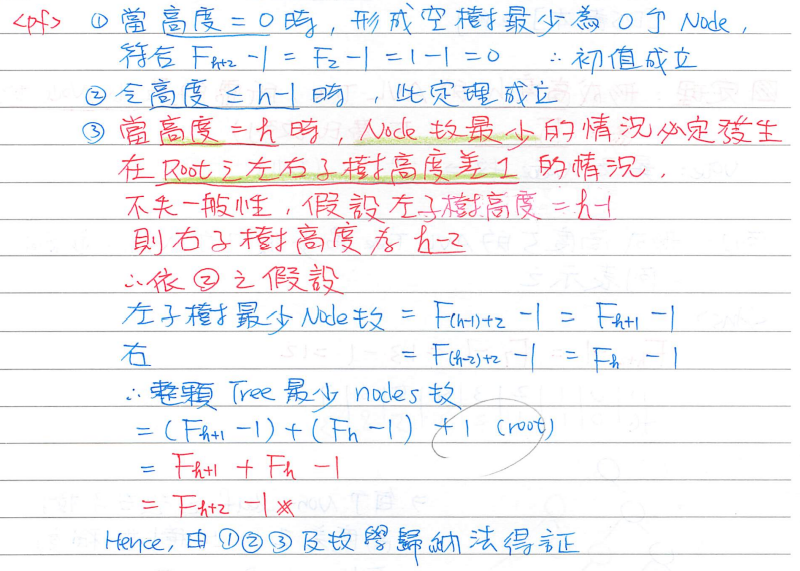 <pf> ① 當高度 = 0 時, 形成空樹最少為 0 个 Node,
符合 F_{h+2} -1 = F_2 -1 = 1-1 = 0 ∴ 初值成立
② 令高度 ≤ h-1 時, 此定理成立
③ 當高度 = h 時, Node 数最少的情況必定發生
在 Root 之左右子樹高度差 1 的情況,
不失一般性, 假設左子樹高度 = h-1
則右子樹高度為 h-2
∴ 依 ② 之假設
左子樹最少 Node 数 = F_{(h-1)+2} -1 = F_{h+1} -1
右 = F_{(h-2)+2} -1 = F_h -1
∴ 整顆 Tree 最少 nodes 数
= (F_{h+1} -1) + (F_h -1) +1 (root)
= F_{h+1} + F_h -1
= F_{h+2} -1 ※
Hence, 由 ①②③ 及数學歸納法得証